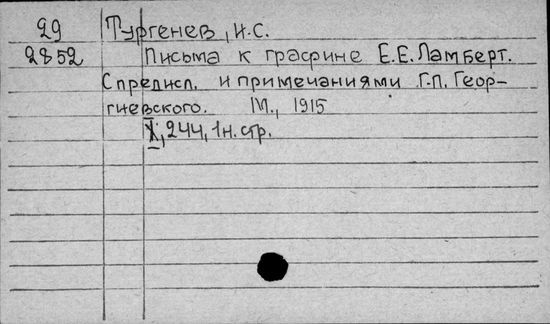 29 Тургенев, И.С.
2852 Письма к графине Е.Е. Ламберт.
С предисл. и примечаниями Г.П. Геор-
гиевского. М., 1915
X, 244, 1 н. стр.